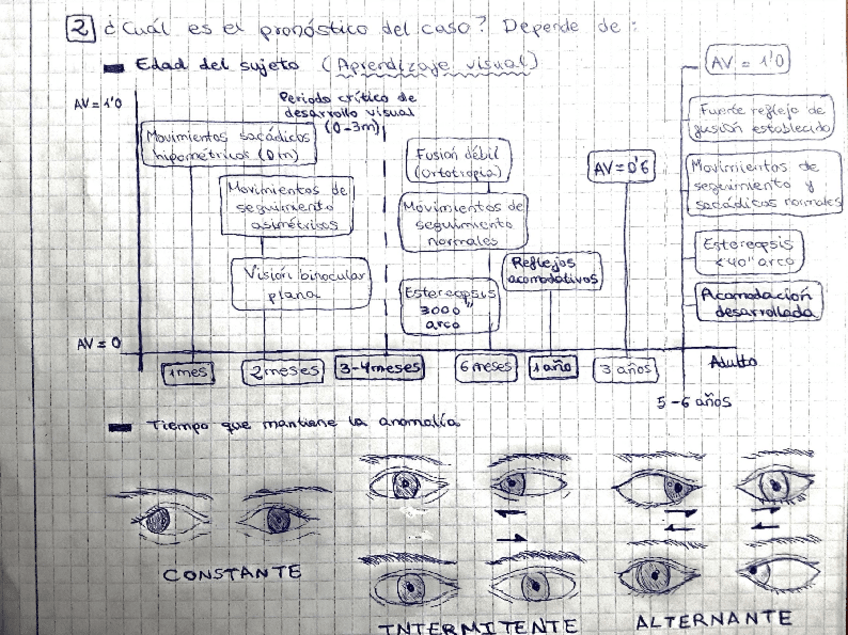 2 ¿Cuál es el pronóstico del caso? Depende de:
Edad del sujeto (Aprendizaje visual)
AV = 1'0
Periodo crítico de
desarrollo visual
(0-3m)
Movimientos sacádicos
hipométricos (0m)
Movimientos de
seguimiento
asimétricos
Visión binocular
plana
Fusión débil
(Ortotropia)
Movimientos de
seguimiento
normales
Estereopsis
3000"
arco
Reflejos
acomodativos
AV = 0'6
AV = 1'0
Fuerte reflejo de
fusión establecido
Movimientos de
seguimiento y
sacádicos normales
Estereopsis
<40" arco
Acomodación
desarrollada
AV = 0
1 mes
2 meses
3-4 meses
6 meses
1 año
3 años
Adulto
5-6 años
Tiempo que mantiene la anomalía
CONSTANTE
INTERMITENTE
ALTERNANTE